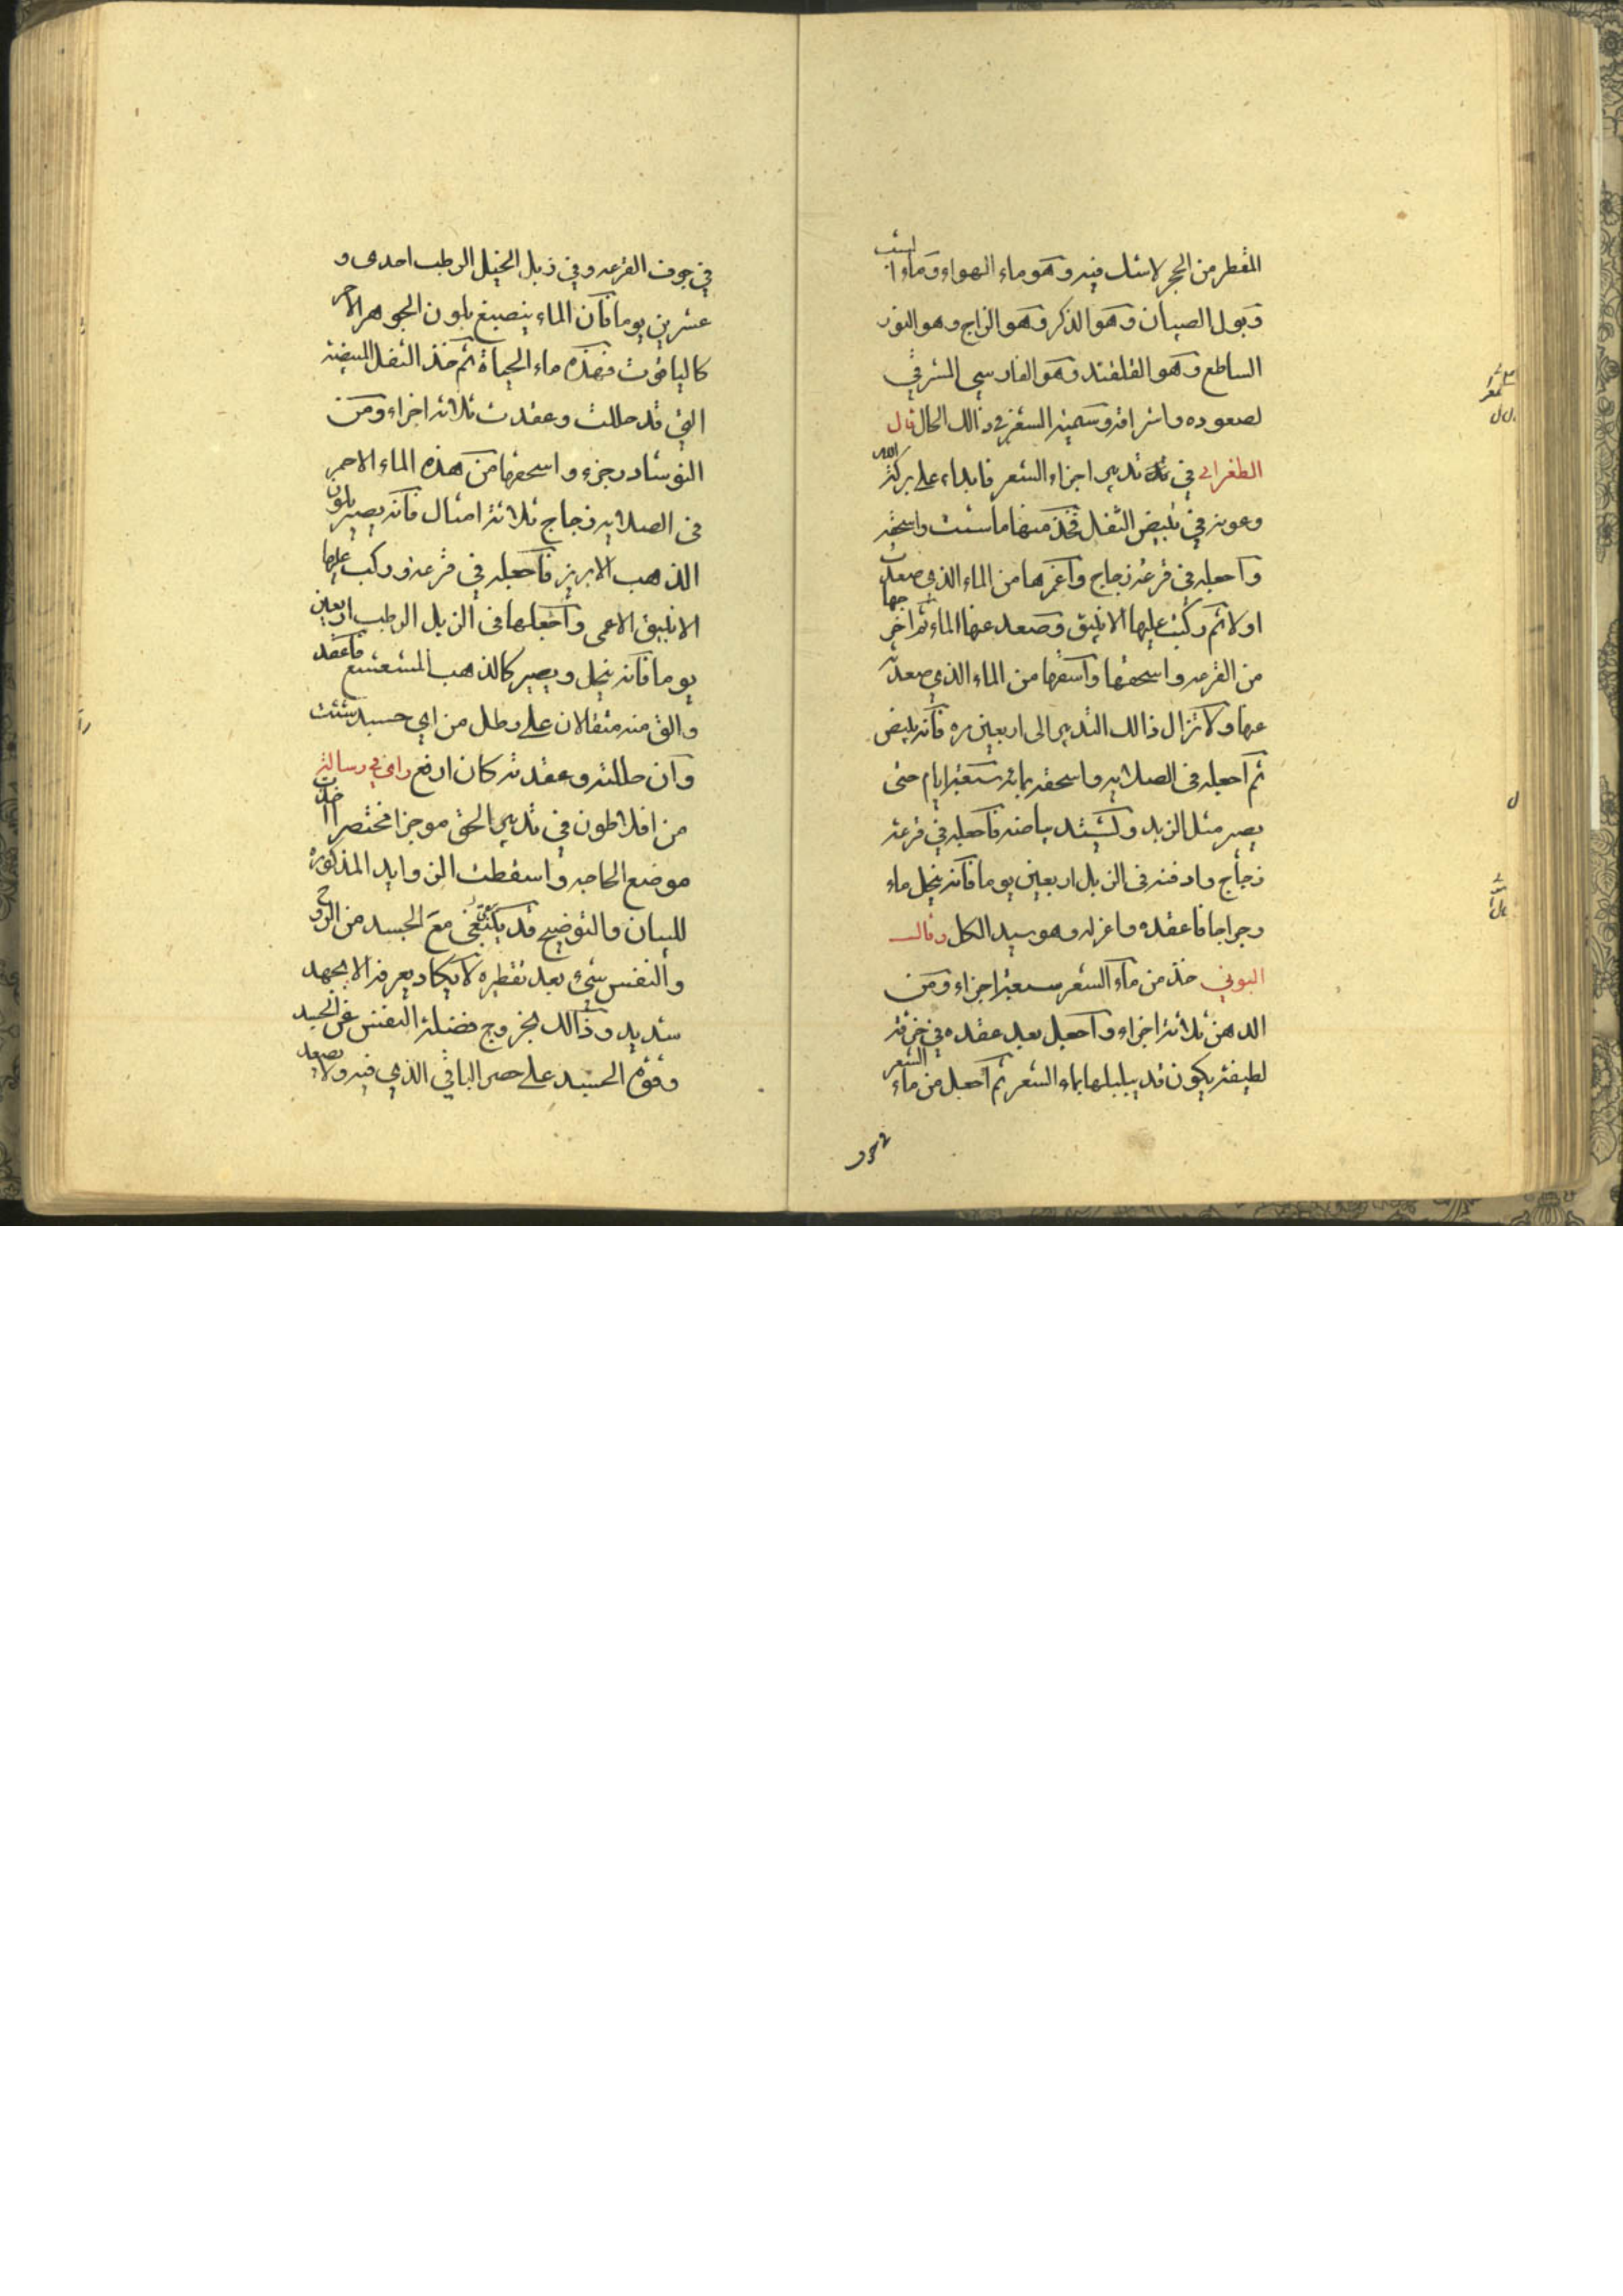 المقطر من الحجر لا شك فيه وهو ماء الهواء وماء
وبول الصبيان وهو الذكر وهو الزاج وهو النور
الساطع وهو القلقند وهو الفارسي المشرقي
لصعوده واشراقه وسميه السفرنى ذالك الحال قال
الطغراى في تدبير اجزاء الشعر فابداء على بركة الله
وعونه في تبيض الثفل فخذ منها ما شئت واسحقه
واجعله في قرعة زجاج واغمرها من الماء الذي صعدت
اولا ثم ركب عليها الانبيق وصعد عنها الماء ثم اخرجها
من القرعه واسحقها واسقها من الماء الذي صعدته
عنها ولا تزال ذالك التدبير الى اربعين مره فانه يبيض
ثم اجعله في الصلايه واسحقه بمائه سبعة ايام حتى
يصير مثل الزبد ويشتد بياضه فاجعله في قرعة
زجاج وادفنه في الزبل اربعين يوما فانه ينحل ماء
رجراجا فاعقده واعزله وهو سيد الكل وقال
البوني خذ من ماء الشعر سبعة اجزاء ومن
الدهن ثلاثة اجزاء واجعل بعد عقده في خرقة
لطيفة يكون قد يبللها بماء الشعر ثم اجعل من ماء الشعر
في جوف القرعه وفي زبل الخيل الرطب احدى و
عشرين يوما فان الماء ينصبغ بلون الجوهر الاحمر
كالياقوت فهذه ماء الحياة ثم خذ الثفل المبيضة
التي قد حللت وعقدت ثلاثة اجزاء ومن
النوشادر جزء واسحقها من هذه الماء الاحمر
في الصلايه زجاج ثلاثة امثال فانه يصير بلون
الذهب الابريز فاجعله في قرعة وركب عليها
الانبيق الاعمى واجعلها في الزبل الرطب اربعين
يوما فانه ينحل ويصير كالذهب المشعشع فاعقد
والق منه مثقالان على رطل من اي جسد شئت
وان حللته وعقدته كان ارفع راى في رسالة
من افلاطون في تدبير الحق موجزا مختصرا اخذت
موضع الحاجه واسقطت الزوايد المذكورة
للبيان والتوضيح قد يبقى مع الجسد من الروح
والنفس شيء بعد تقطيره لا يكاد يعرفه الا بجهد
شديد وذالك لخروج فضلة النفس عن الجسد
وقوة الجسد على حصر الباقي الذي فيه ولا يصعد